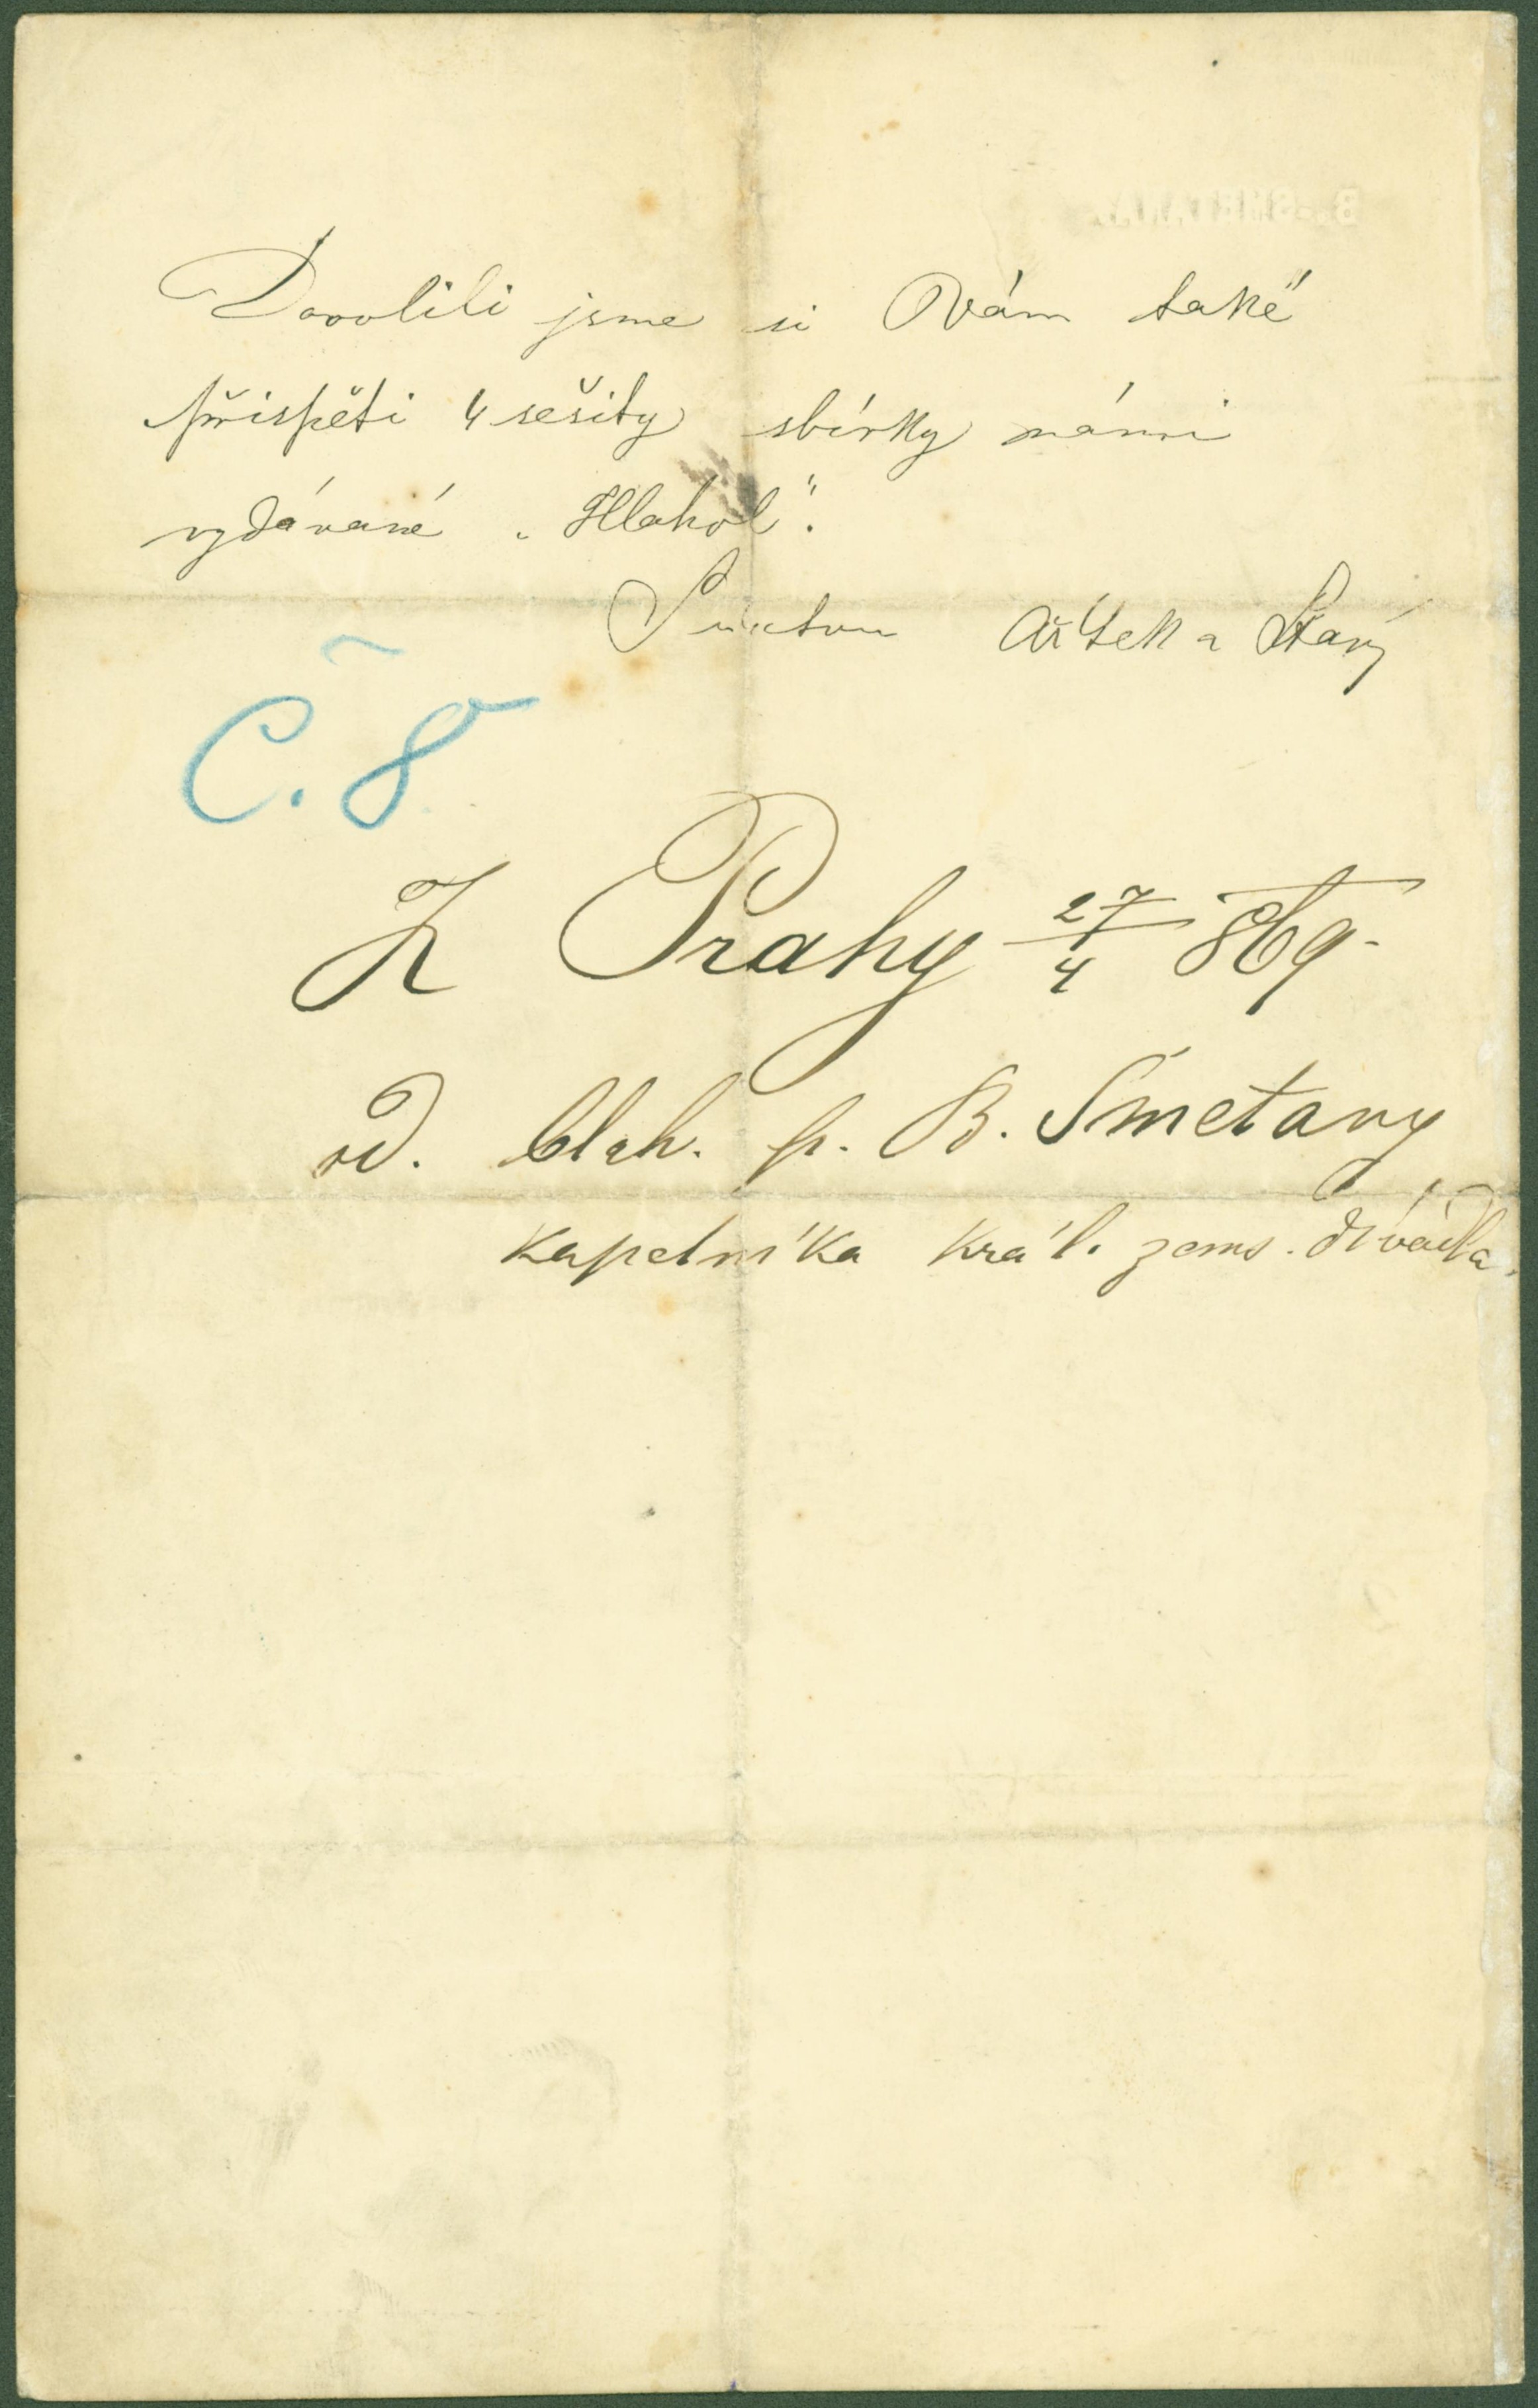 Dovolili jsme si Vám také
přispěti 4 sešity sbírky námi
vydávané „Hlahol“.
a Starý
Č. 8
Z Prahy 27/4 869.
od. blah. p. B. Smetany
kapelníka král. zems. divadla.